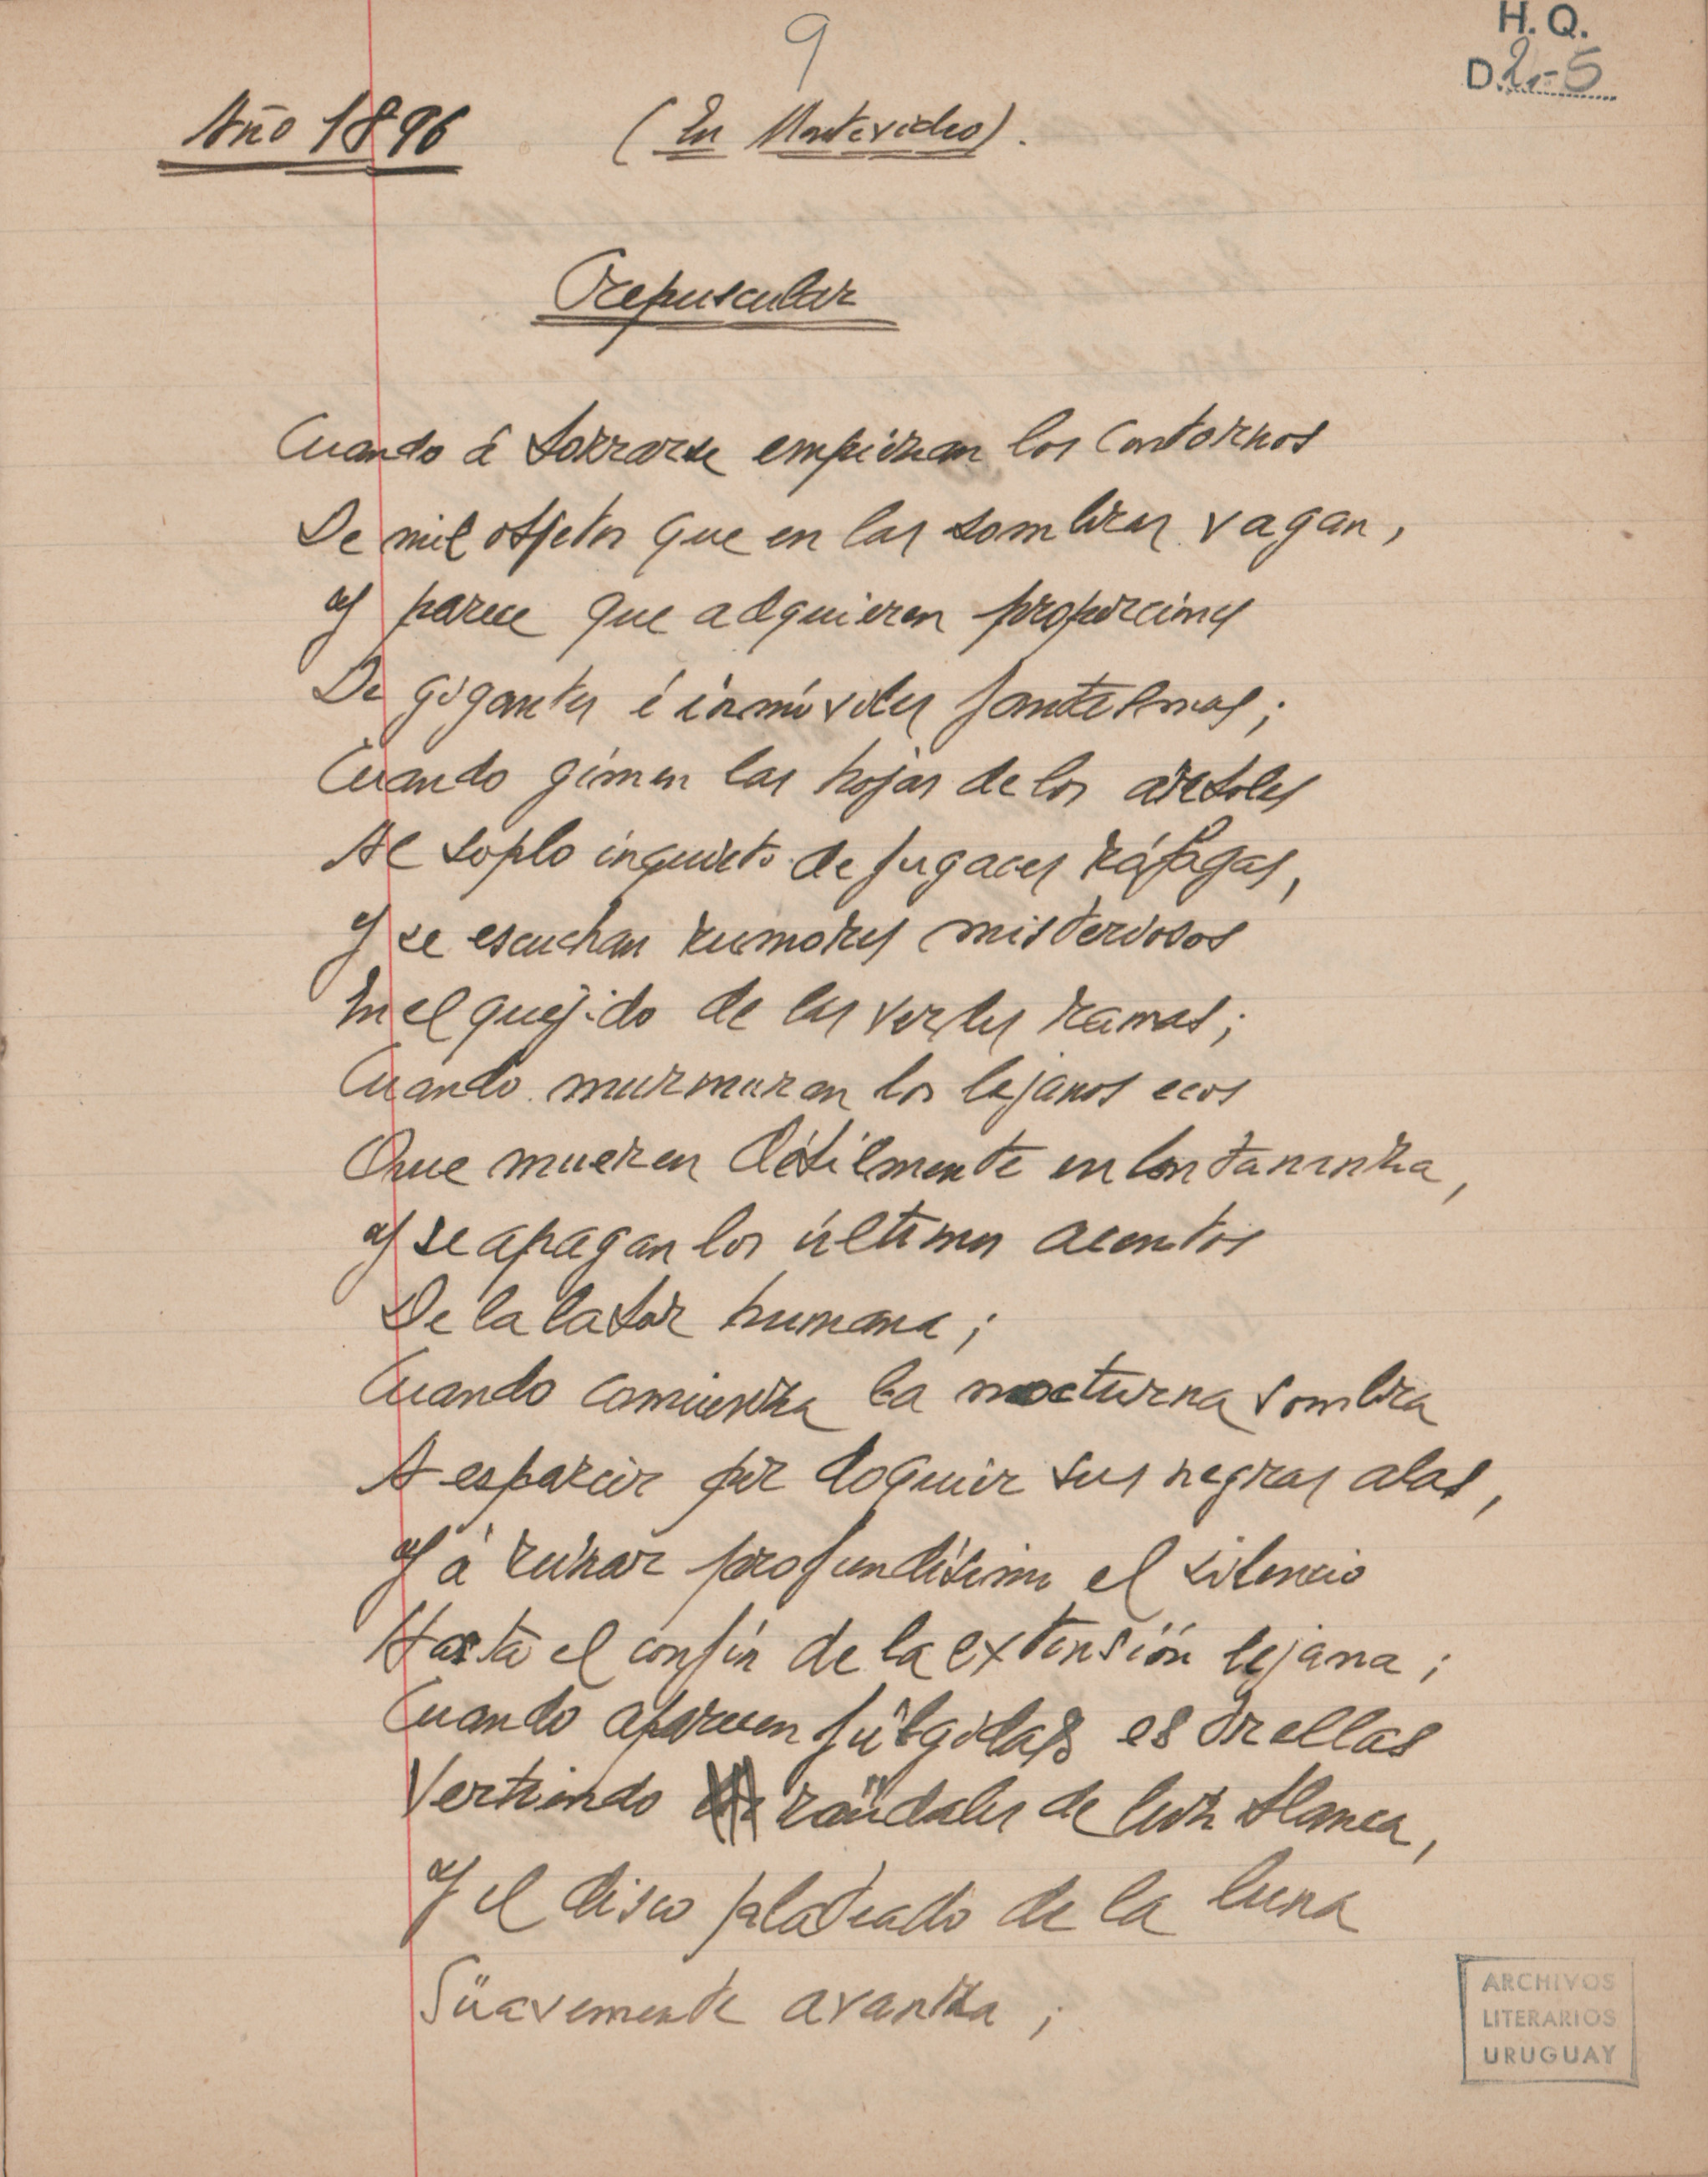 9
H. Q.
D. 2-5
Año 1896 (En Montevideo).
Crepuscular
Cuando á borrarse empiezan los contornos
De mil objetos que en las sombras vagan,
Y parece que adquieren proporciones
De gigantes é inmóviles fantasmas;
Cuando gimen las hojas de los árboles
Al soplo inquieto de fugaces ráfagas,
Y se escuchan rumores misteriosos
En el quejido de las verdes ramas;
Cuando murmuran los lejanos ecos
Que mueren débilmente en lontananza,
Y se apagan los últimos acentos
De la labor humana;
Cuando comienza la nocturna sombra
A esparcir por doquier sus negras alas,
Y á reinar profundísimo el silencio
Hasta el confín de la extensión lejana;
Cuando aparecen fúlgidas estrellas
Vertiendo raüdales de luz blanca,
Y el disco plateado de la luna
Süavemente avanza;
ARCHIVOS
LITERARIOS
URUGUAY